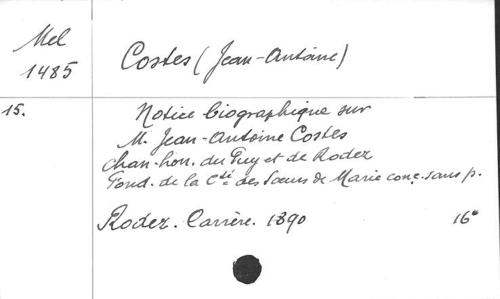 Mel
1485
Costes (Jean-Antoine)
15.
Notice biographique sur
M. Jean-Antoine Costes
chan. hon. du Puy et de Rodez
Fond. de la Cté des Sœurs de Marie conç. sans p.
Rodez. Carrère. 1890
16°